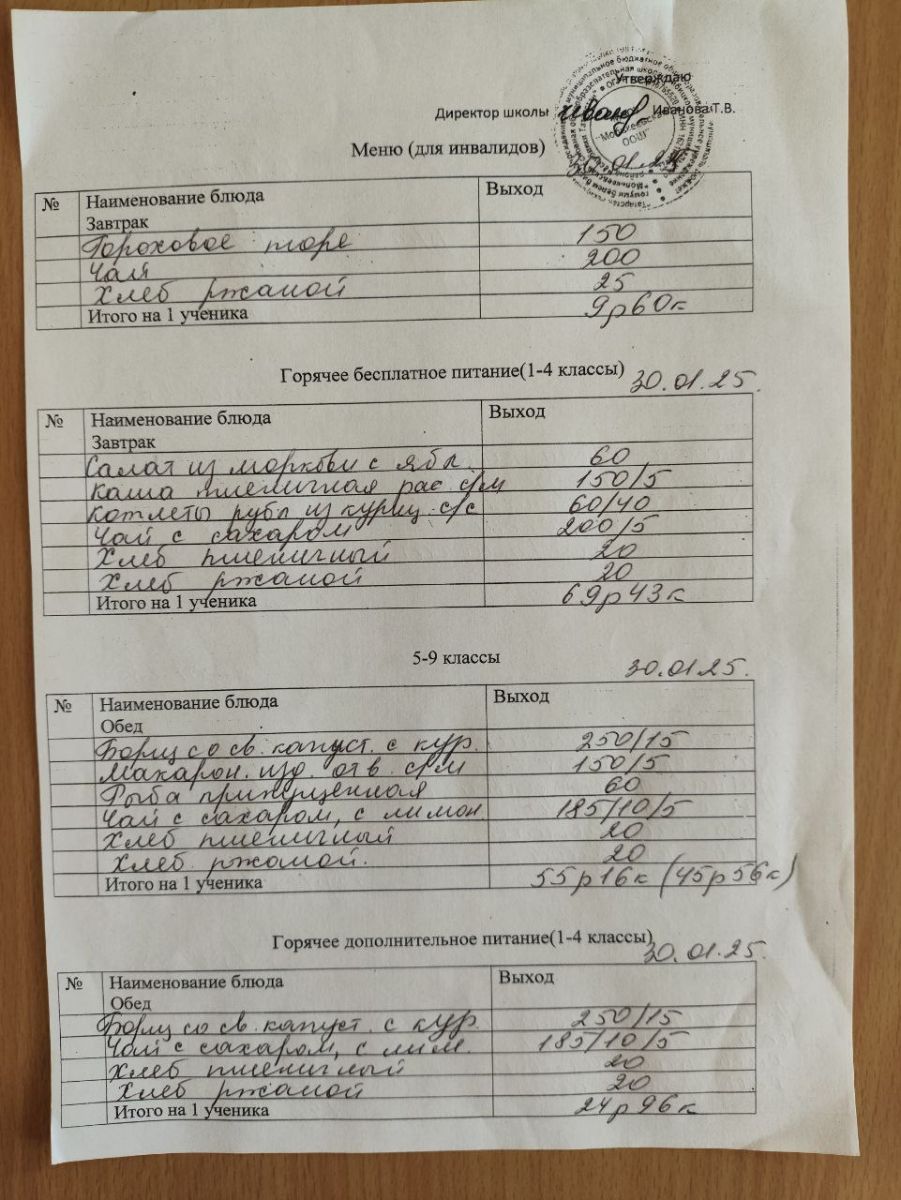 Утверждаю
Директор школы Иванова Т.В.
Меню (для инвалидов) 30.01.25
№ Наименование блюда Выход
Завтрак
Гороховое пюре 150
Чай 200
Хлеб ржаной 25
Итого на 1 ученика 9р60к
Горячее бесплатное питание(1-4 классы) 30.01.25.
№ Наименование блюда Выход
Завтрак
Салат из моркови с ябл. 60
Каша пшеничная рас с/м 150/5
Котлеты рубл из куриц с/с 60/40
Чай с сахаром 200/5
Хлеб пшеничный 20
Хлеб ржаной 20
Итого на 1 ученика 69р43к
5-9 классы 30.01.25.
№ Наименование блюда Выход
Обед
Борщ со св. капуст. с кур. 250/15
Макарон. изд. отв. с/м 150/5
Рыба припущенная 60
Чай с сахаром, с лимон 185/10/5
Хлеб пшеничный 20
Хлеб ржаной. 20
Итого на 1 ученика 55р16к (45р56к)
Горячее дополнительное питание(1-4 классы) 30.01.25.
№ Наименование блюда Выход
Обед
Борщ со св. капуст. с кур. 250/15
Чай с сахаром, с лим. 185/10/5
Хлеб пшеничный 20
Хлеб ржаной 20
Итого на 1 ученика 24р96к